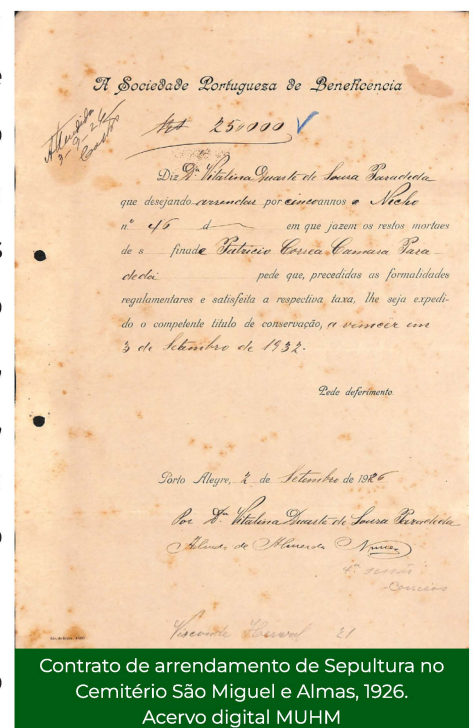 A Sociedade Portugueza de Beneficencia
Attendida
3-9-26
25$000
Diz Dª Vitalina Duarte de Souza Paradeda
que desejando arrendar por cinco annos o Nicho
nº 46 d em que jazem os restos mortaes
de s finado Patricio Correa Camara Para
deda pede que, precedidas as formalidades
regulamentares e satisfeita a respectiva taxa, lhe seja expedi-
do o competente titulo de conservação, a vencer em
3 de Setembro de 1932.
Pede deferimento
Porto Alegre, 2 de Setembro de 1926
Por Dª Vitalina Duarte de Souza Paradeda
de Almeida Nunes
Correios
Visconde Herval 21
Contrato de arrendamento de Sepultura no
Cemitério São Miguel e Almas, 1926.
Acervo digital MUHM